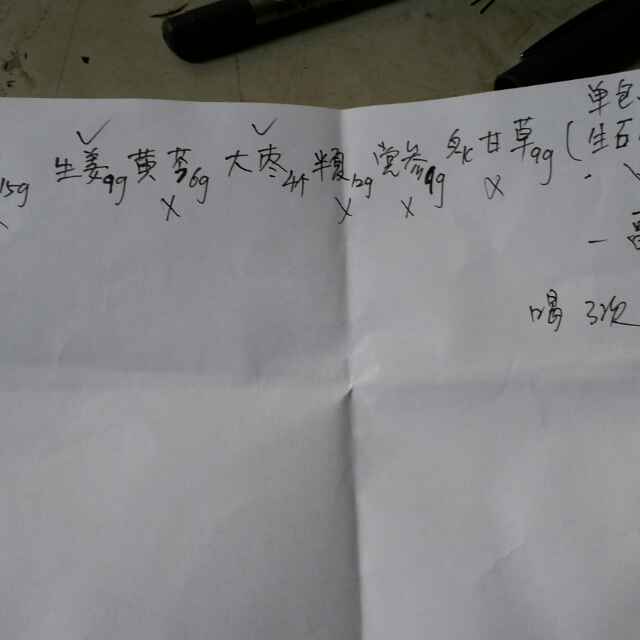 单包
15g 生姜9g 黄芩6g 大枣4个 半夏12g 党参9g 炙甘草9g (生石
一
喝3次